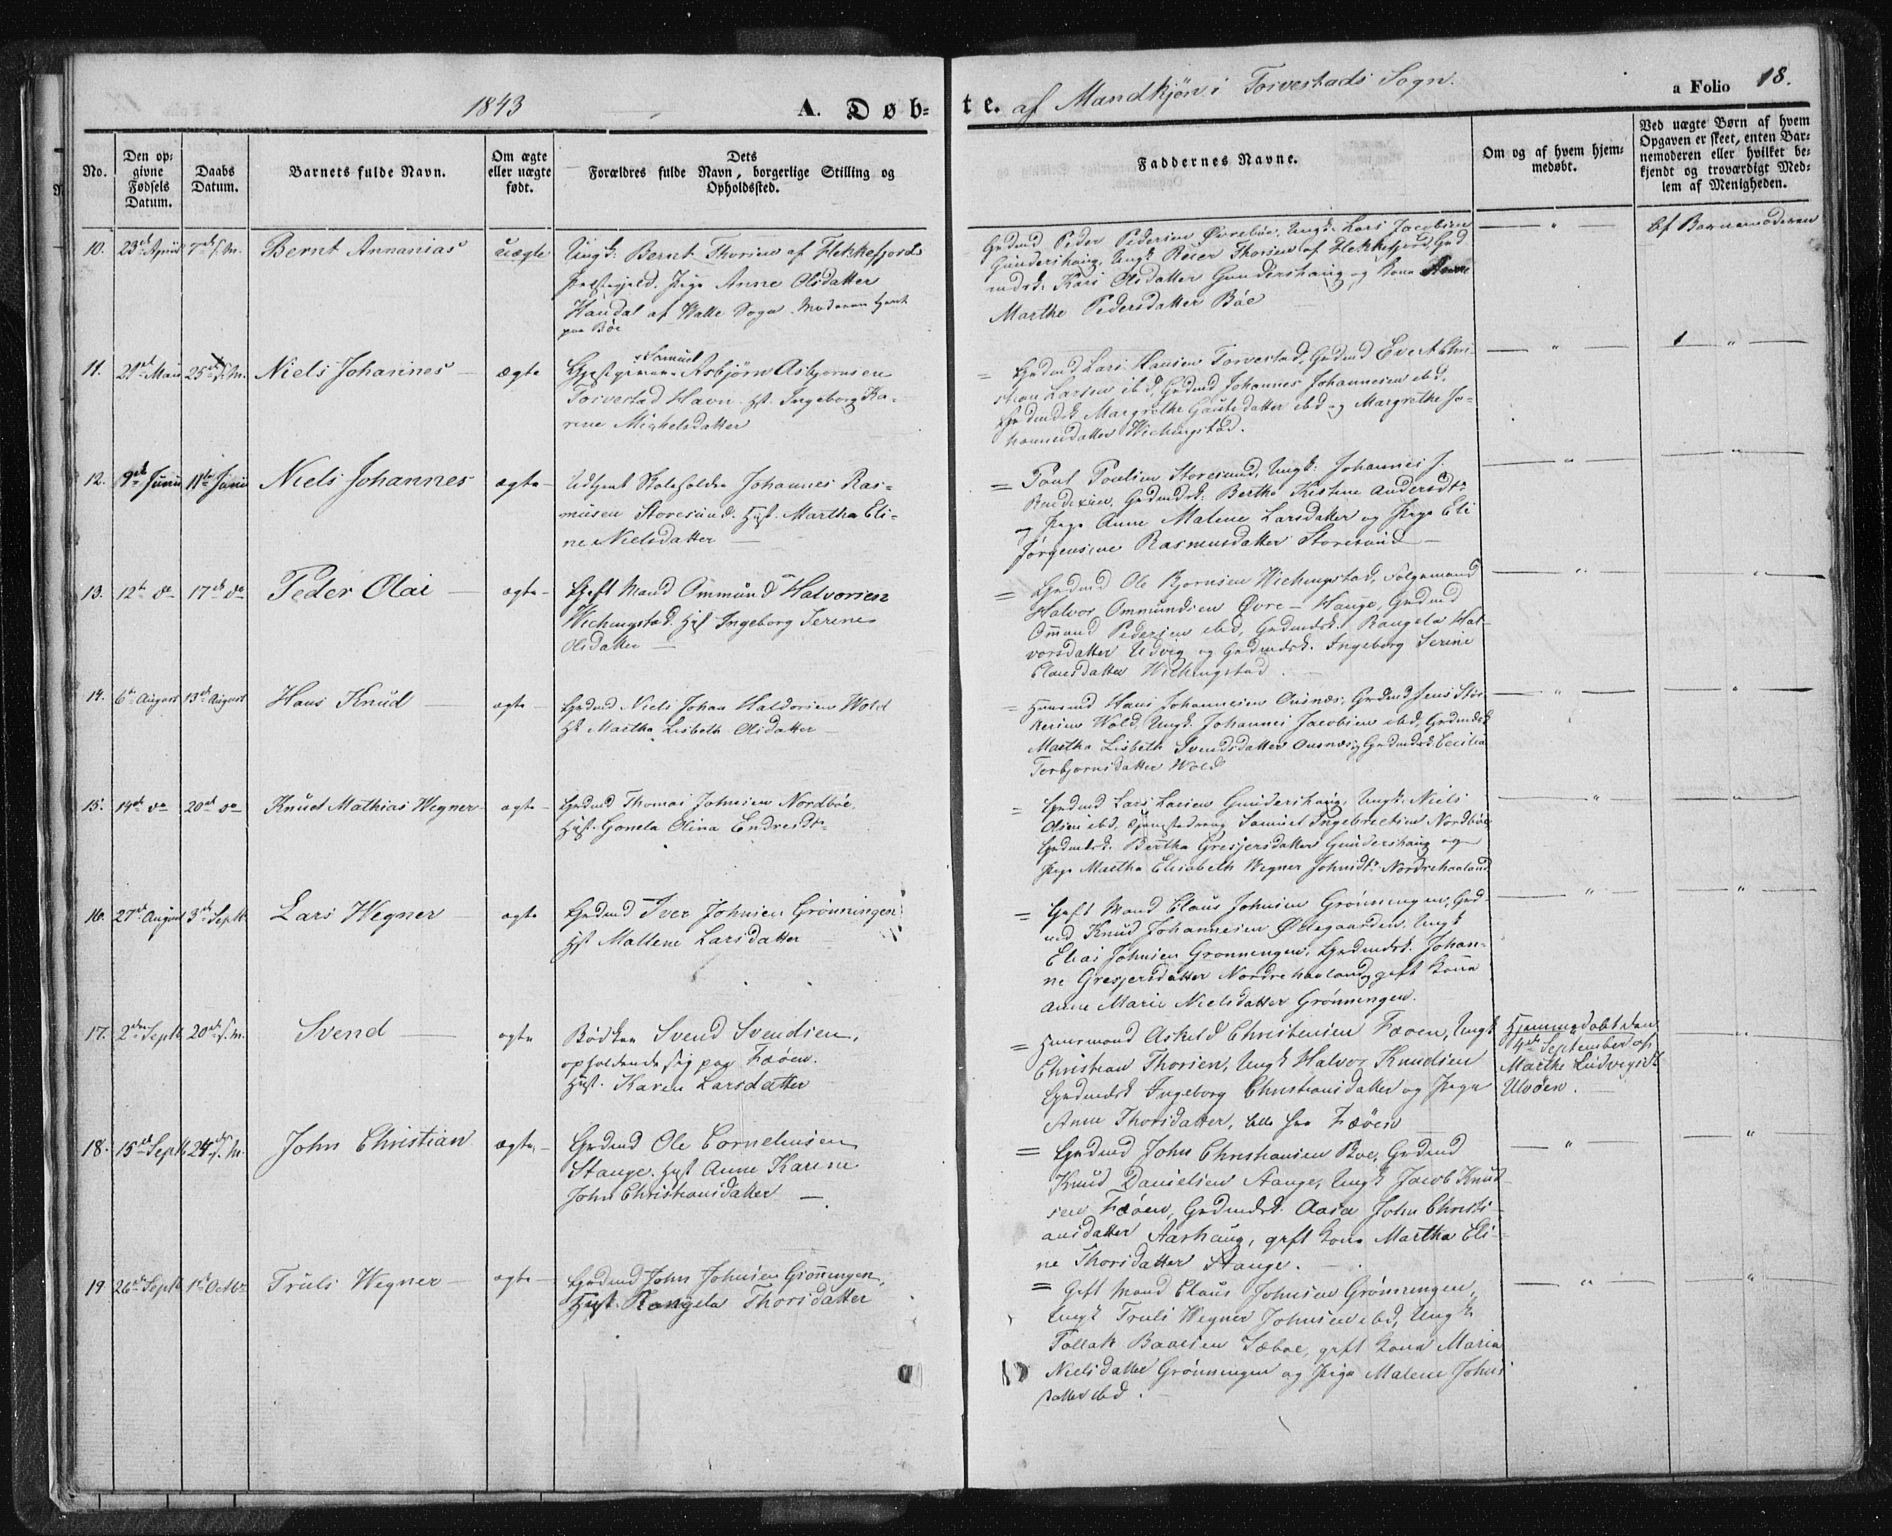 1843
A. Døb-
te. af Mandkjøn i Torvestads Sogn.
a Folio 18.
No.
Den op-
givne
Fødsels
Datum.
Daabs
Datum.
Barnets fulde Navn.
Om ægte
eller uægte
født.
Dets
Forældres fulde Navn, borgerlige Stilling og
Opholdssted.
Faddernes Navne.
Om og af hvem hjem-
medøbt.
Ved uægte Børn af hvem
Opgaven er skeet, enten Bar-
nemoderen eller hvilket be-
kjendt og troværdigt Med-
lem af Menigheden.
10. 23de April 7de f. M. Bernt Annanias uægte
Ungk: Bernt Thorsen af Flekkefjords
Præstegjeld. Pige Anne Olsdatter
Haudal af Walle Sogn. Moderen tjent
paa Böe
Grdmd Peder Pedersen Øvrebøe, Ungk. Lars Jacobsen
Gundershaug, Ungk Reier Thorsen af Flekkefjord, Grd
mdsk. Kari Olsdatter Gundershaug og Kone
Marthe Pedersdatter Böe
— " —
Af Barnemoderen
11. 21de Mai 25de f. M. Niels Johannes — ægte
Gjestgiver Samuel Asbjørn Asbjørnsen
Torvestad Havn. Hst. Ingeborg Ka-
rine Michelsdatter
= Grdmd Lars Hansen Torvestad, Grdmd Evert Chri-
stian Larsen ibd, Grdmd Johannes Johannesen ibd,
Grdmdsk Margrethe Gautesdatter ibd og Margrethe Jo-
hannesdatter Wichingstad.
— " —
— " —
12. 9de Juni 11te Juni Niels Johannes ægte —
Udtjent Johannes Ras-
musen Storesund. Hst. Martha Eli-
ne Nielsdatter —
= Poul Poulsen Storesund, Ungk: Johannes J.
Grdmdsk. Bertha Kistine Andersdtr
og Pige Anne Malene Larsdatter og Pige Eli
Jørgensine Rasmusdatter Storesund —
— " —
— " —
13. 12te do 17de do Peder Olai — ægte —
Gift Mand Ommund Halvorsen
Wichingstad. Hst Ingeborg Serine
Olsdatter —
= Grdmd Ole Bjørnsen Wichingstad, Følgemand
Halvor Ommundsen Øvre - Hauge, Grdmd
Omund Pedersen ibd, Grdmdsk. Rangela Hal-
vorsdatter Udvig og Grdmdsk. Ingeborg Serine
Clausdatter Wichingstad.
— " —
— " —
14. 6te August 13de August Hans Knud — ægte —
Grdmd Niels Johan Haldorsen Wold
Hst Martha Lisbeth Olsdatter —
= Huusmd Hans Johannesen Ousnæs, Grdmd Jens
Wold, Ungk. Johannes Jacobsen ibd, Grdmdsk
Martha Lisbeth Svendsdatter Ousnæs, Grdmdsk Cecilia
Torbjørnsdatter Wold
— " —
— " —
15. 14de do 20de do Knud Mathias Wegner — ægte —
Grdmd Thomas Johnsen Nordböe,
Hst. Gonela Olina Endresdtr
= Grdmd Lars Larsen Gundershaug, Ungk. Niels
Olsen ibd, Tjenestedreng Samuel Ingebrectsen Nordböe
Grdmdsk. Bertha Gresjersdatter Gundershaug og
Pige Martha Elisabeth Wegner Johnsdtr Nordrehaaland
— " —
— " —
16. 27de August 3de Septb Lars Wegner — ægte
Grdmd Iver Johnsen Grönningen
Hst Mallene Larsdatter —
= Gift Mand Claus Johnsen Grönningen, Grd-
md Knud Johannesen Ødegaarden, Ungk
Elias Johnsen Grönningen, Grdmdsk. Johan-
ne Gresjersdatter Nordrehaaland, og gift Kona
Anne Marie Nielsdatter Grönningen.
— " —
— " —
17. 2den Septb 20de f. M. Svend — ægte
Bödker Svend Svendsen,
opholdende sig paa Fæöen.
Hst. Karen Larsdatter
= Huusmand Askild Christensen Fæoen, Ungk
Christian Thorsen, Ungk Halvor Knudsen
Grdmdsk Ingeborg Christiansdatter og Pige
Anne Thorsdatter, alle fra Fæöen —
Hjemmedøbt den
4de September af
Marthe Ludvigsdtr
Utvöen.
— " —
18. 15de Septb 24de f. M. John Christian ægte —
Grdmd Ole Corneliussen
Stange. Hst Anne Karine
John Christiansdatter —
= Grdmd John Christiansen Boe, Grdmd
Knud Danielsen Stange, Ungk Jacob Knud-
sen Fæöen, Grdmdsk. Aasa John Christi-
ansdatter Aarhaug, gift Kona Martha Eli-
ne Thorsdatter Stange. —
— " —
— " —
19 26de Septb 1ste Octbr Truls Wegner — ægte —
Grdmd John Johnsen Grönningen,
Hst. Rangela Thorsdatter
= Gift Mand Claus Johnsen Grönningen,
Ungk Truls Wegner Johnsen ibd, Ungk
Tollak Baarsen Sæboe, gift Kona Maria
Nielsdatter Grönningen og Pige Malene Johns
datter ibd.
— " —
— " —